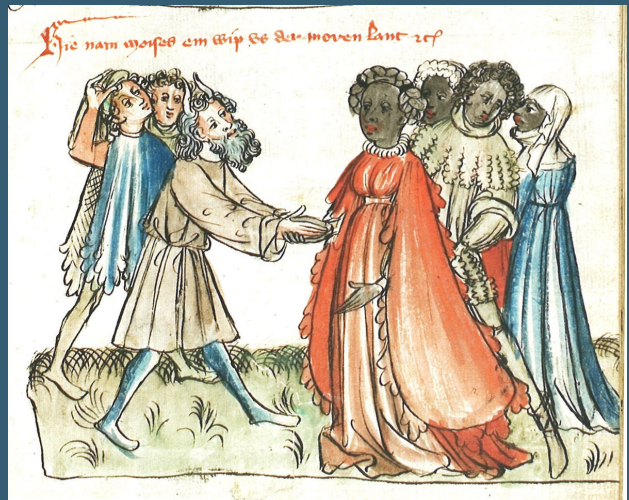 Hie nam moises ein wip vs der moren lant ꝛcꝭ